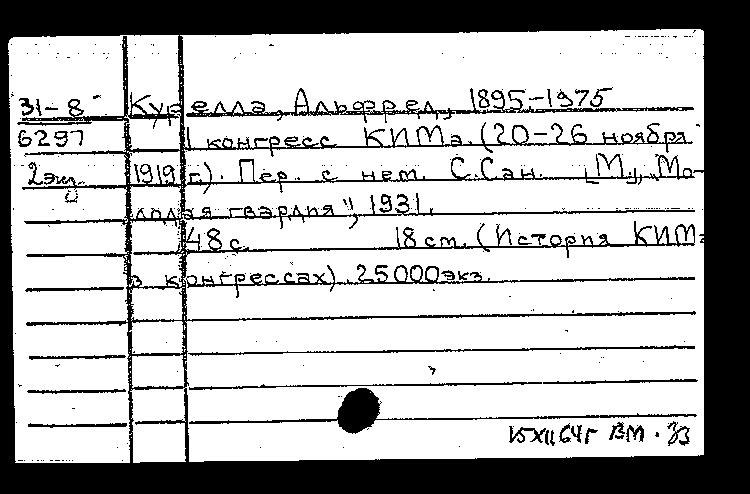 31-8 Курелла, Альфред, 1895-1975
6297 I конгресс КИМа. (20-26 ноября
2 экз. 1919 г.). Пер. с нем. С.Сан. [М.], „Мо-
лодая гвардия", 1931.
48 с. 18 см. (История КИМа
в конгрессах). 25000 экз.
15 XII 64 г ВМ.